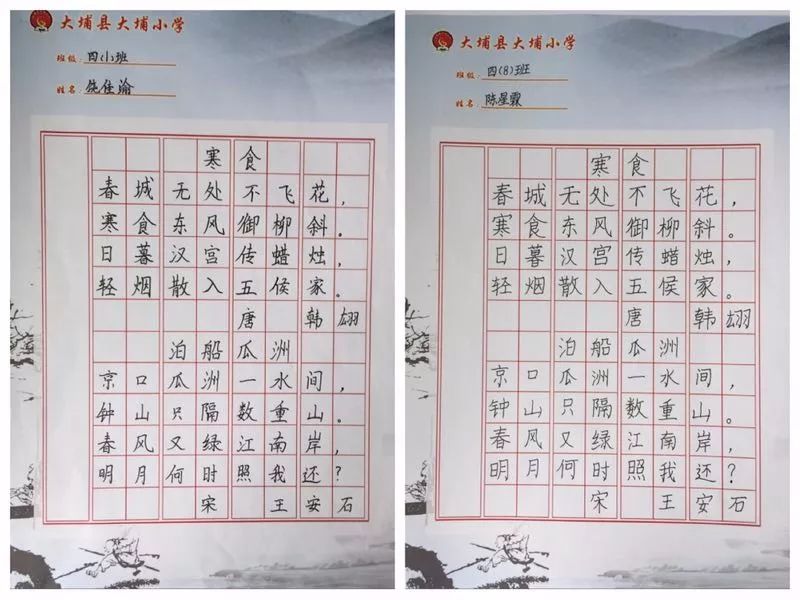 大埔县大埔小学
班级：四(小)班
姓名：饶佳渝
寒食
春城无处不飞花，
寒食东风御柳斜。
日暮汉宫传蜡烛，
轻烟散入五侯家。
唐 韩翃
泊船瓜洲
京口瓜洲一水间，
钟山只隔数重山。
春风又绿江南岸，
明月何时照我还？
宋 王安石
大埔县大埔小学
班级：四(8)班
姓名：陈星霖
寒食
春城无处不飞花，
寒食东风御柳斜。
日暮汉宫传蜡烛，
轻烟散入五侯家。
唐 韩翃
泊船瓜洲
京口瓜洲一水间，
钟山只隔数重山。
春风又绿江南岸，
明月何时照我还？
宋 王安石